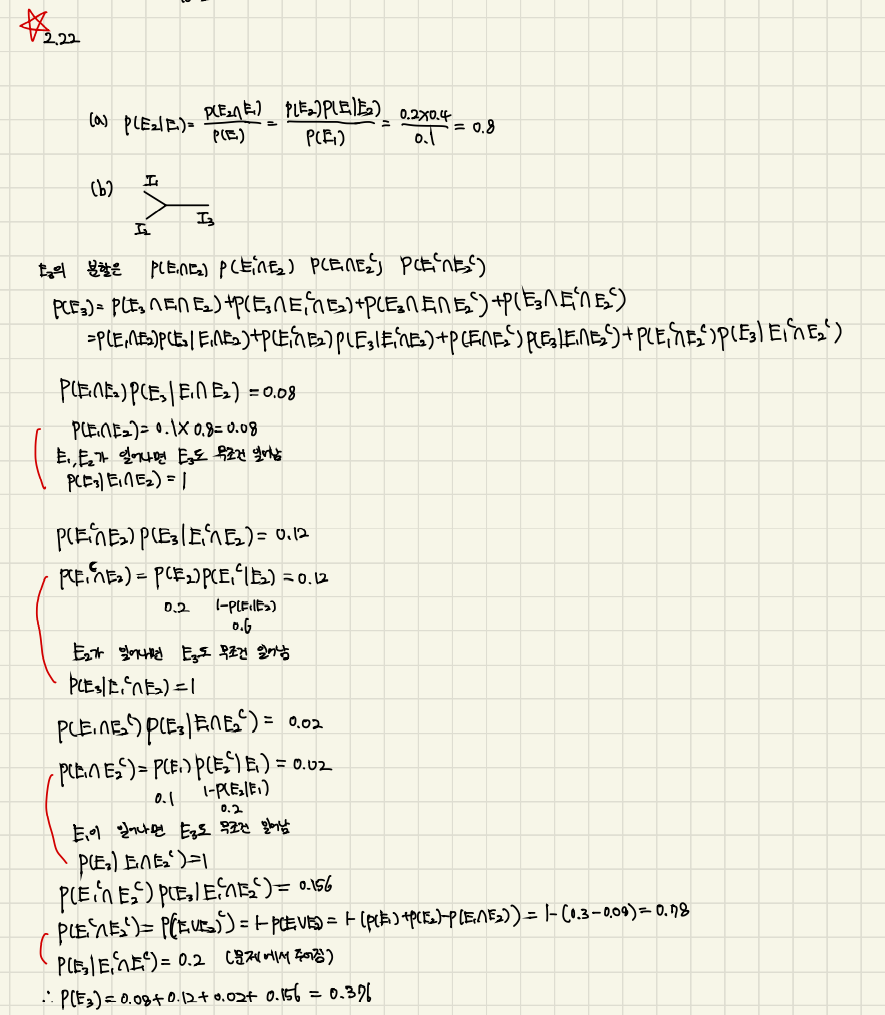 2.22
(a) P(E₂|E₁) = P(E₂∩E₁)/P(E₁) = P(E₂)P(E₁|E₂)/P(E₁) = 0.2×0.4/0.1 = 0.8
(b)
I₁
I₂
I₃
E₃의 분할은 P(E₁∩E₂) P(E₁ᶜ∩E₂) P(E₁∩E₂ᶜ) P(E₁ᶜ∩E₂ᶜ)
P(E₃) = P(E₃∩E₁∩E₂)+P(E₃∩E₁ᶜ∩E₂)+P(E₃∩E₁∩E₂ᶜ)+P(E₃∩E₁ᶜ∩E₂ᶜ)
=P(E₁∩E₂)P(E₃|E₁∩E₂)+P(E₁ᶜ∩E₂)P(E₃|E₁ᶜ∩E₂)+P(E₁∩E₂ᶜ)P(E₃|E₁∩E₂ᶜ)+P(E₁ᶜ∩E₂ᶜ)P(E₃|E₁ᶜ∩E₂ᶜ)
P(E₁∩E₂)P(E₃|E₁∩E₂) = 0.08
P(E₁∩E₂) = 0.1×0.8 = 0.08
E₁,E₂가 일어나면 E₃도 무조건 일어남
P(E₃|E₁∩E₂) = 1
P(E₁ᶜ∩E₂)P(E₃|E₁ᶜ∩E₂) = 0.12
P(E₁ᶜ∩E₂) = P(E₂)P(E₁ᶜ|E₂) = 0.12
0.2 1-P(E₁|E₂)
0.6
E₂가 일어나면 E₃도 무조건 일어남
P(E₃|E₁ᶜ∩E₂) = 1
P(E₁∩E₂ᶜ)P(E₃|E₁∩E₂ᶜ) = 0.02
P(E₁∩E₂ᶜ) = P(E₁)P(E₂ᶜ|E₁) = 0.02
0.1 1-P(E₂|E₁)
0.2
E₁이 일어나면 E₃도 무조건 일어남
P(E₃|E₁∩E₂ᶜ) = 1
P(E₁ᶜ∩E₂ᶜ)P(E₃|E₁ᶜ∩E₂ᶜ) = 0.156
P(E₁ᶜ∩E₂ᶜ) = P((E₁∪E₂)ᶜ) = 1-P(E₁∪E₂) = 1-(P(E₁)+P(E₂)-P(E₁∩E₂)) = 1-(0.3-0.08) = 0.78
P(E₃|E₁ᶜ∩E₂ᶜ) = 0.2 (문제에서 주어짐)
∴ P(E₃) = 0.08+0.12+0.02+ 0.156 = 0.376